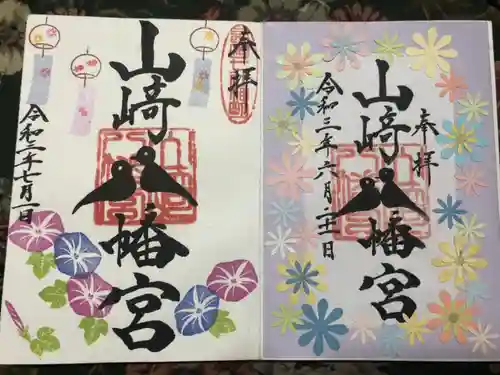 奉拝
山崎八幡宮
令和三年七月一日
奉拝
山崎八幡宮
令和三年六月二十一日